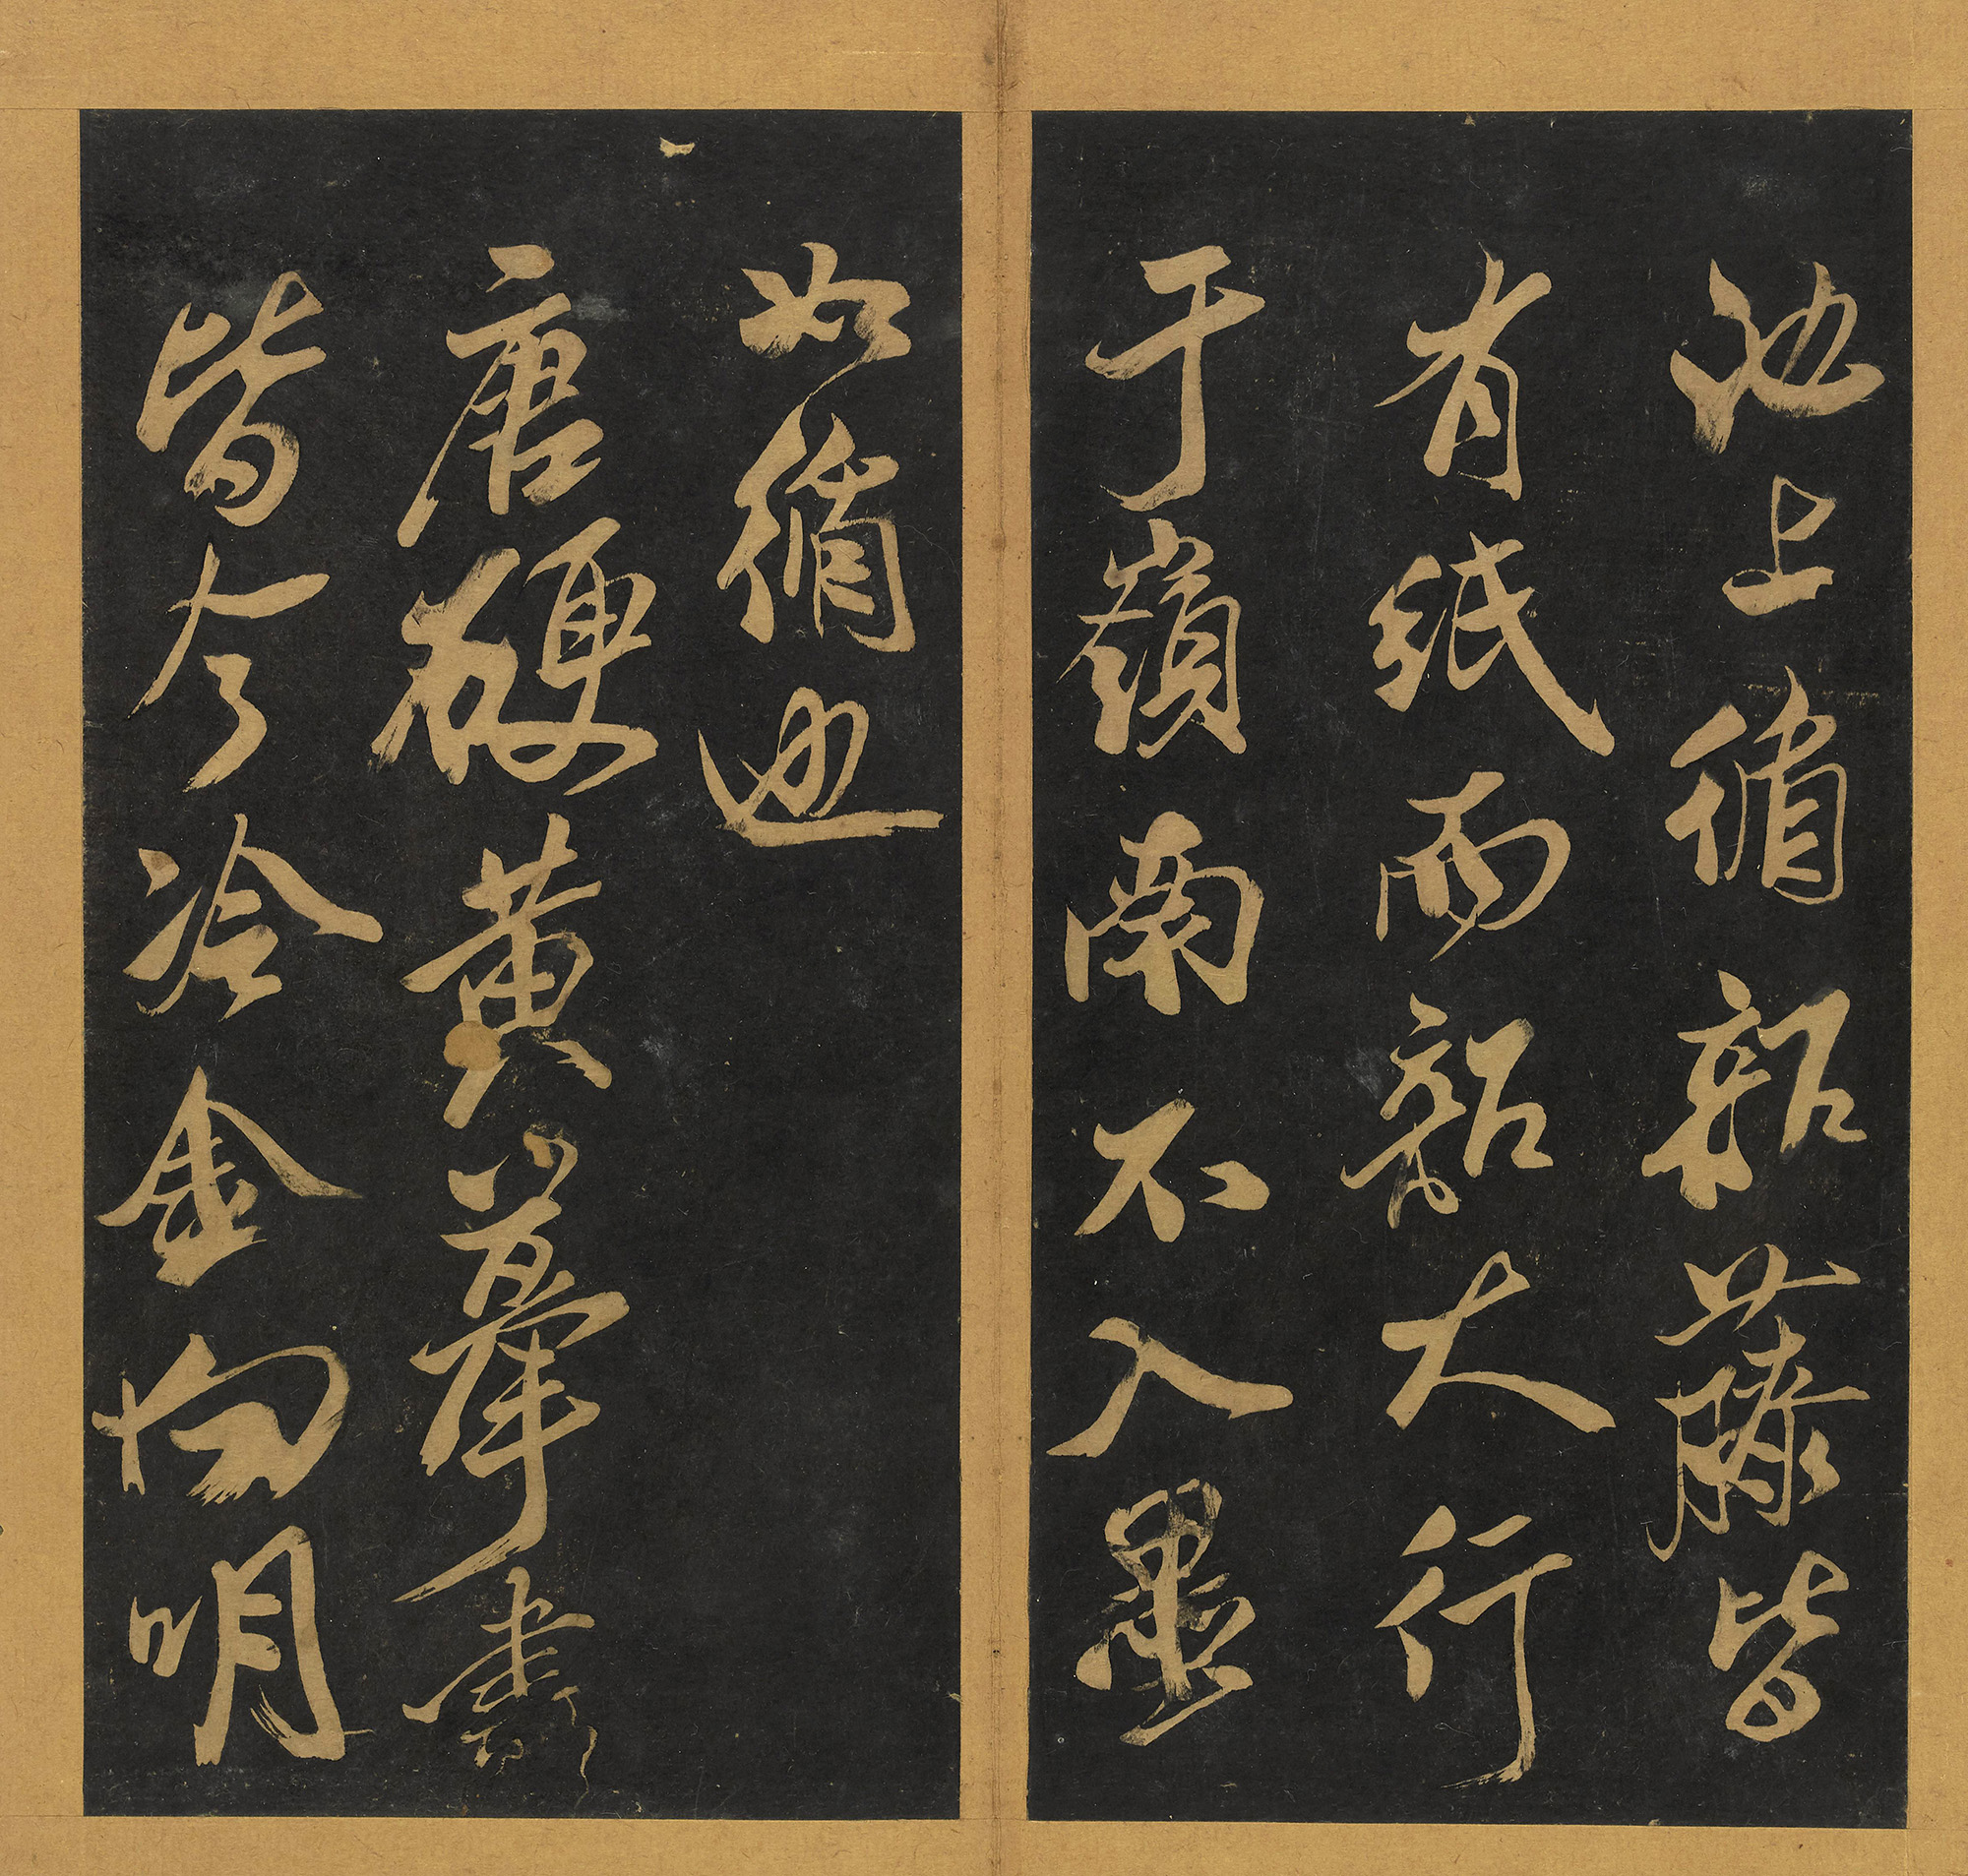 池上循韶藤皆
有紙而韶大行
于嶺南不入墨
如循也
唐硬黃摹書
皆今冷金向明